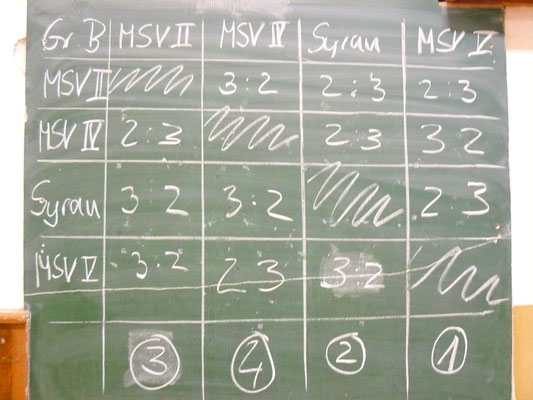 Gr. B MSV II MSV IV Syrau MSV V
MSV II 3:2 2:3 2:3
MSV IV 2:3 2:3 3 2
Syrau 3 2 3:2 2 3
MSV V 3:2 2 3 3:2
3 4 2 1